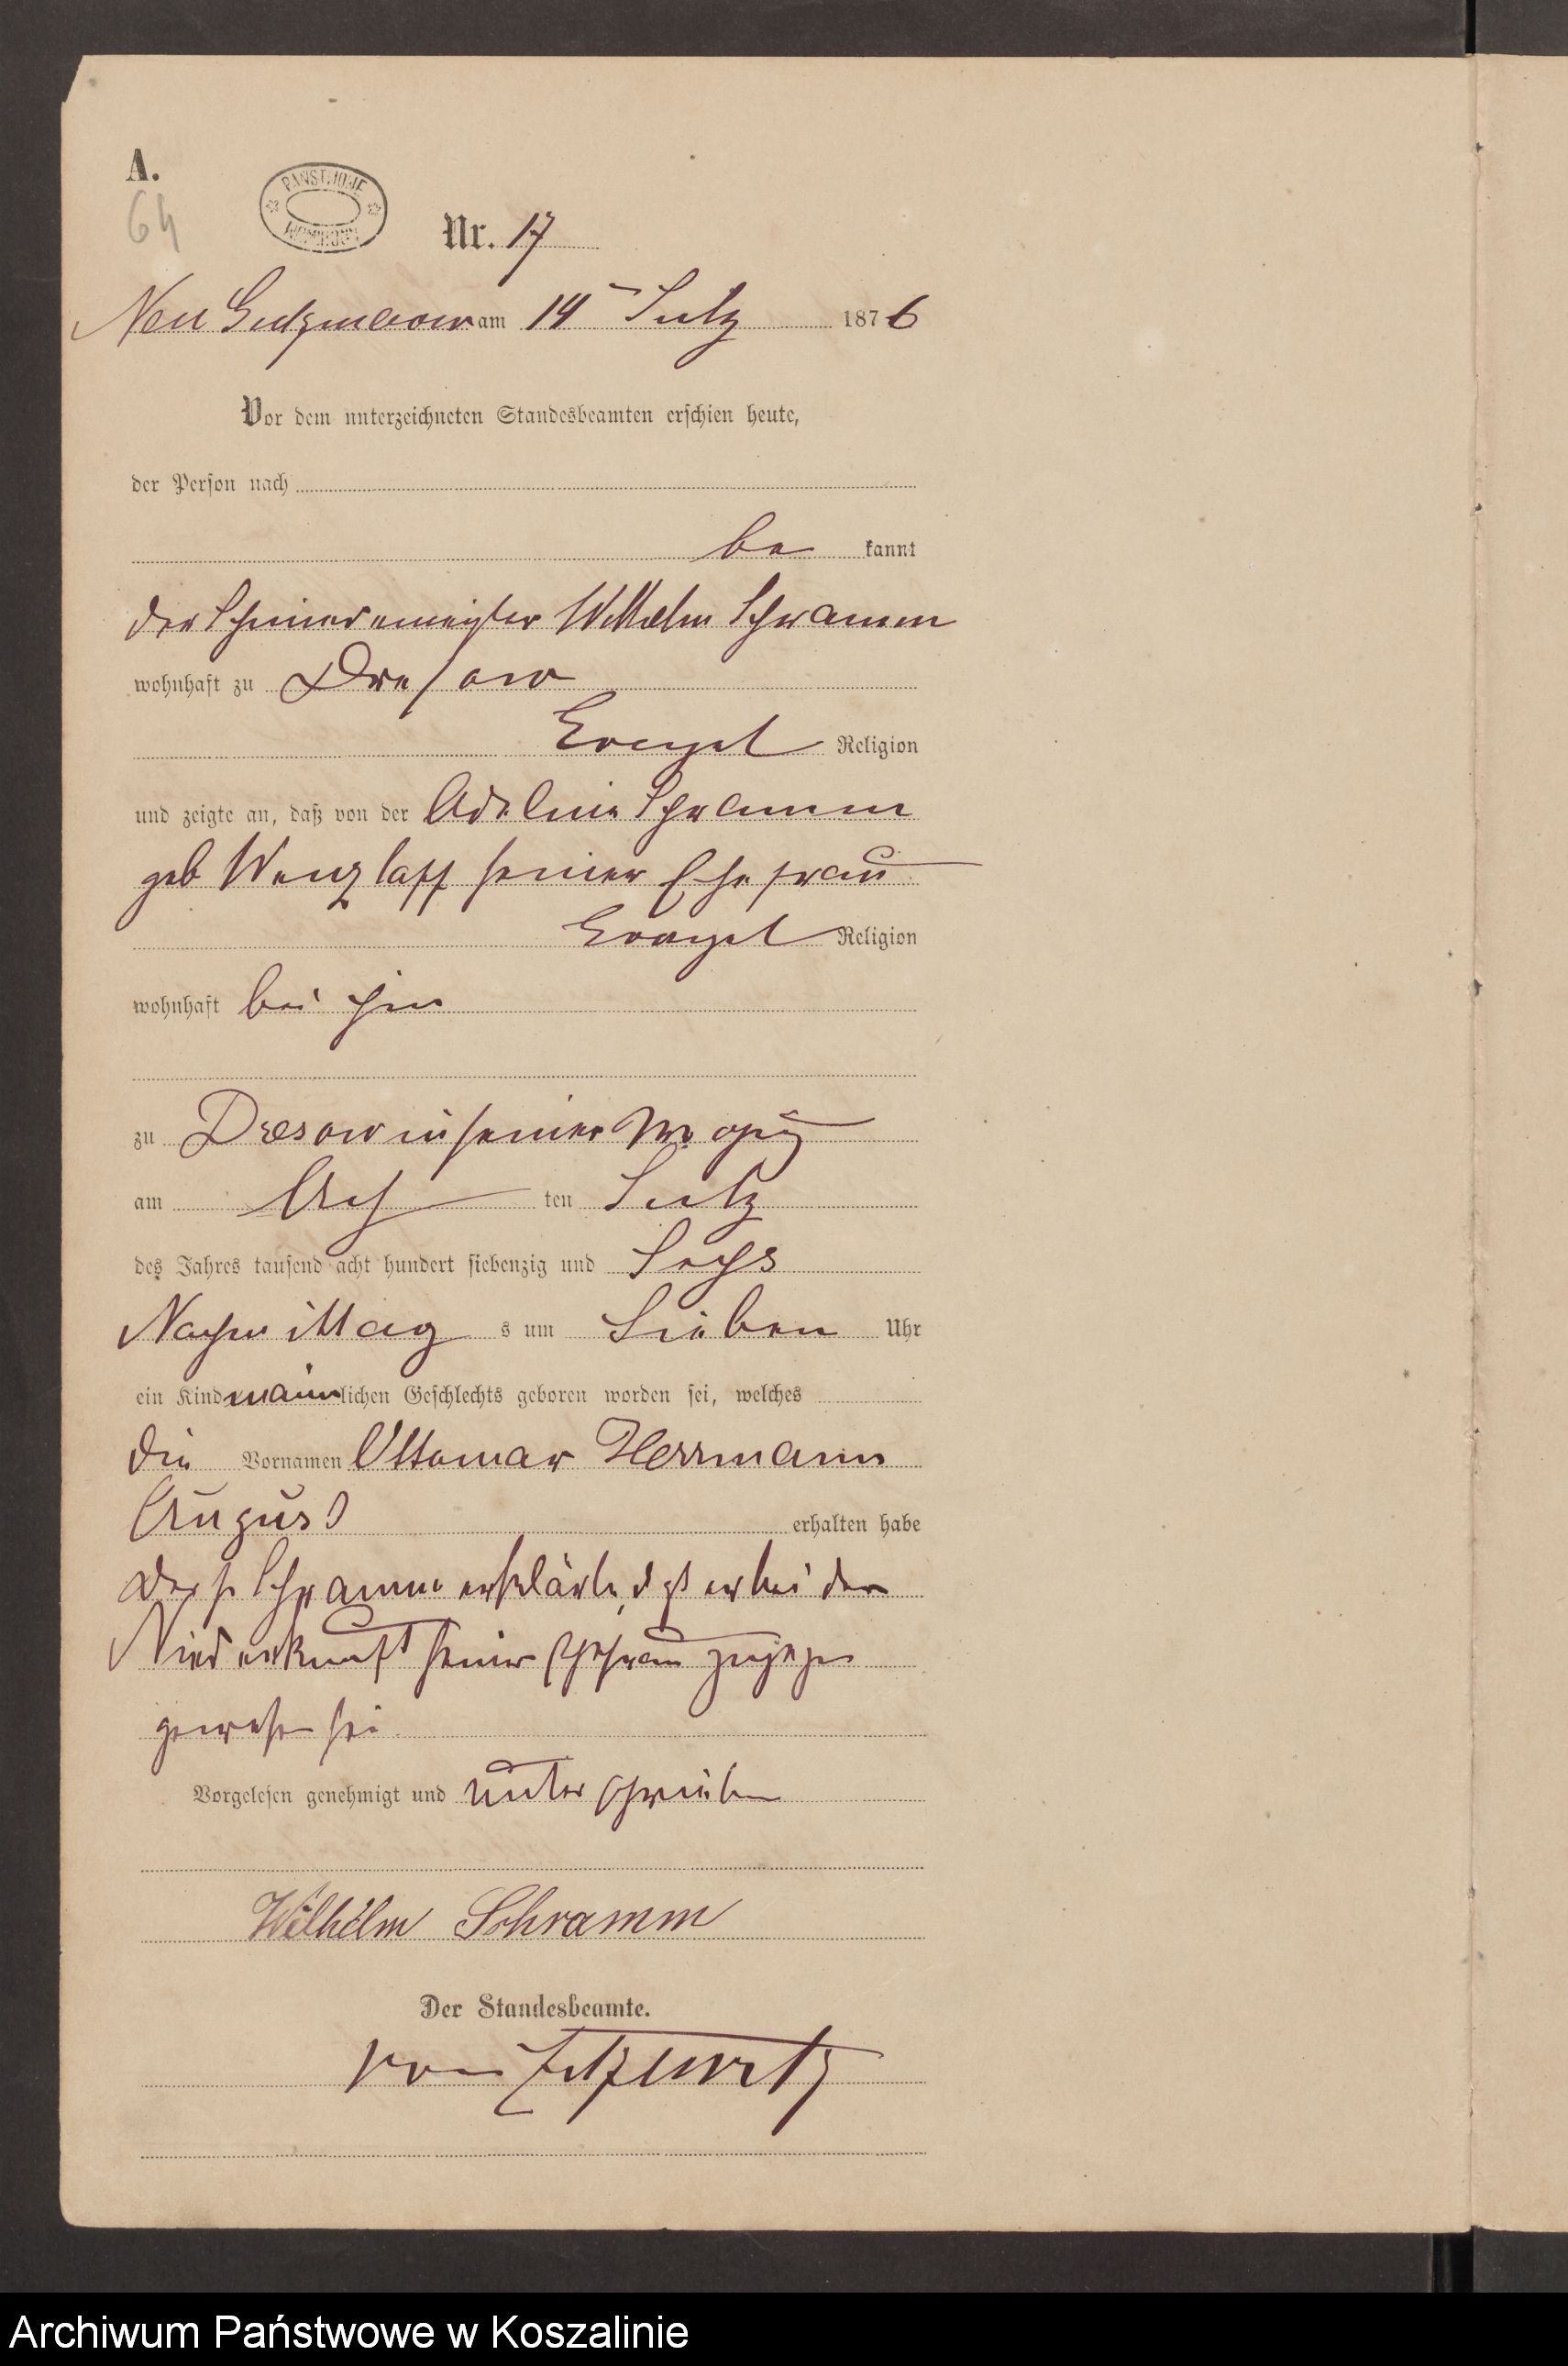 A.
64
PAŃSTWOWE
Nr. 17
Neu Gutzmerow am 14ten July 1876
Vor dem unterzeichneten Standesbeamten erschien heute,
der Person nach
be kannt
der Wilhelm Schramm
wohnhaft zu Dresow
Evangel Religion
und zeigte an, daß von der Adeline Schramm
geb Wenzlaff seiner Ehefrau
Evangel Religion
wohnhaft bei ihm
zu Dresow in seiner Wohnung
am Ach ten July
des Jahres tausend acht hundert siebenzig und Sechs
Nachmittag s um Sieben Uhr
ein Kind männlichen Geschlechts geboren worden sei, welches
die Vornamen Ottomar Herrmann
August
erhalten habe
Der Schramm erklärte, daß er bei der
Niederkunft seiner Ehefrau zugegen
gewesen sei
Vorgelesen genehmigt und unterschrieben
Wilhelm Schramm
Der Standesbeamte.
von Zitzewitz
Archiwum Państwowe w Koszalinie